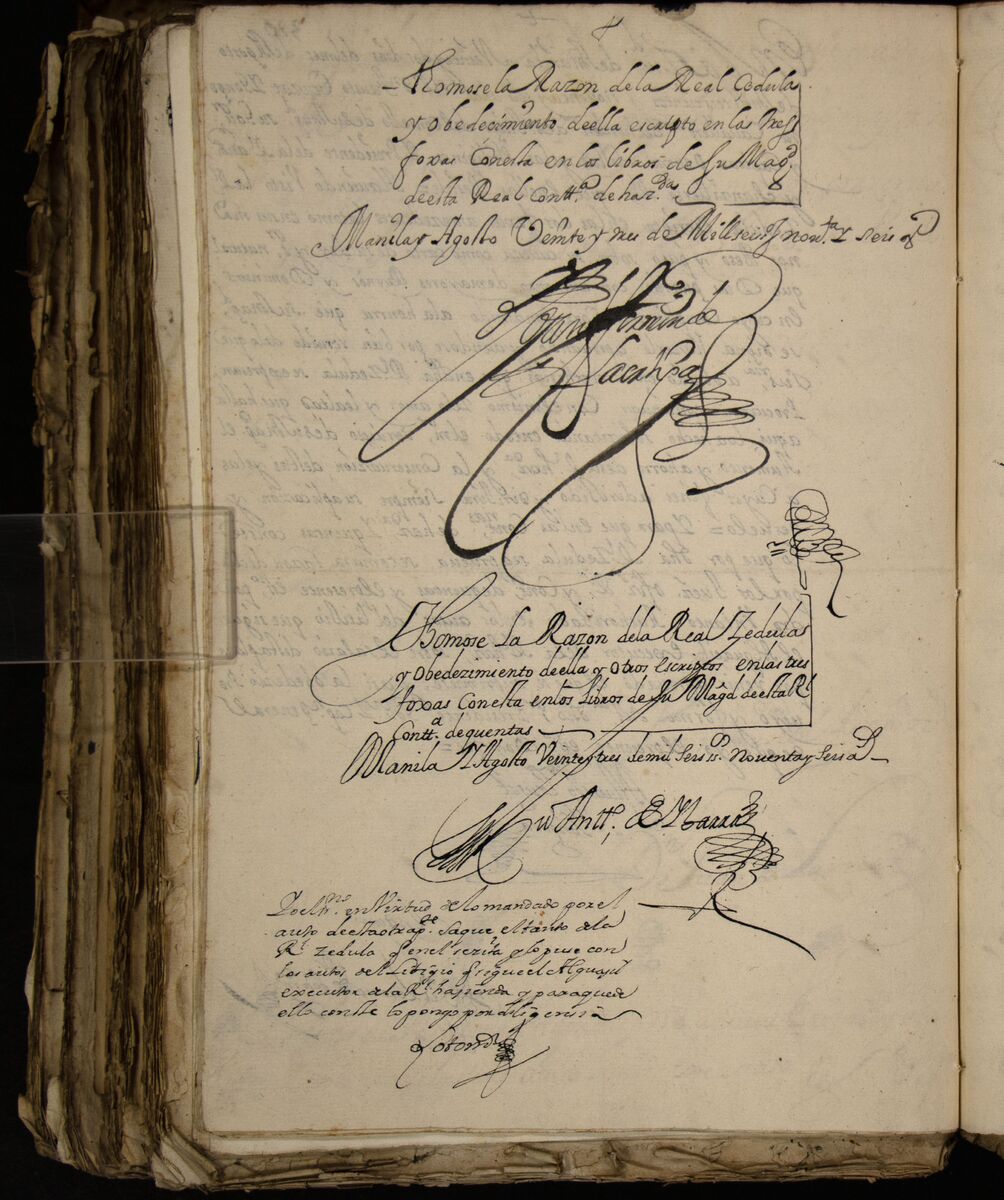 Thomose la Razon de la Real Çedula
y obedecimiento de ella escripto en las tres
foxas Con esta en los libros de Su Magd
de esta Real Contta. de haz.da
Manila y Agosto Veinte y tres de Mill seisºs nouta. y seis as
Thomose La Razon de la Real Zedulas
y obedezimiento de ella y otros Escriptos en las tres
foxas Con esta en los Libros de Su Magd de esta Rl
Contta. de quentas
Manila Y Agosto Veinte y tres de mil seis sos. Noventa y Seis as
Antto. de Ybarra
Yo el ssno en Virtud de lo mandado por el
auto de esta otra pte. Saque el tanto de la
Rl Zedula q en el se zita y lo puse con
los autos del Litigio q sigue el Alguazil
executor de la Rl hazienda y para que de
ello conste lo pongo por diligensia